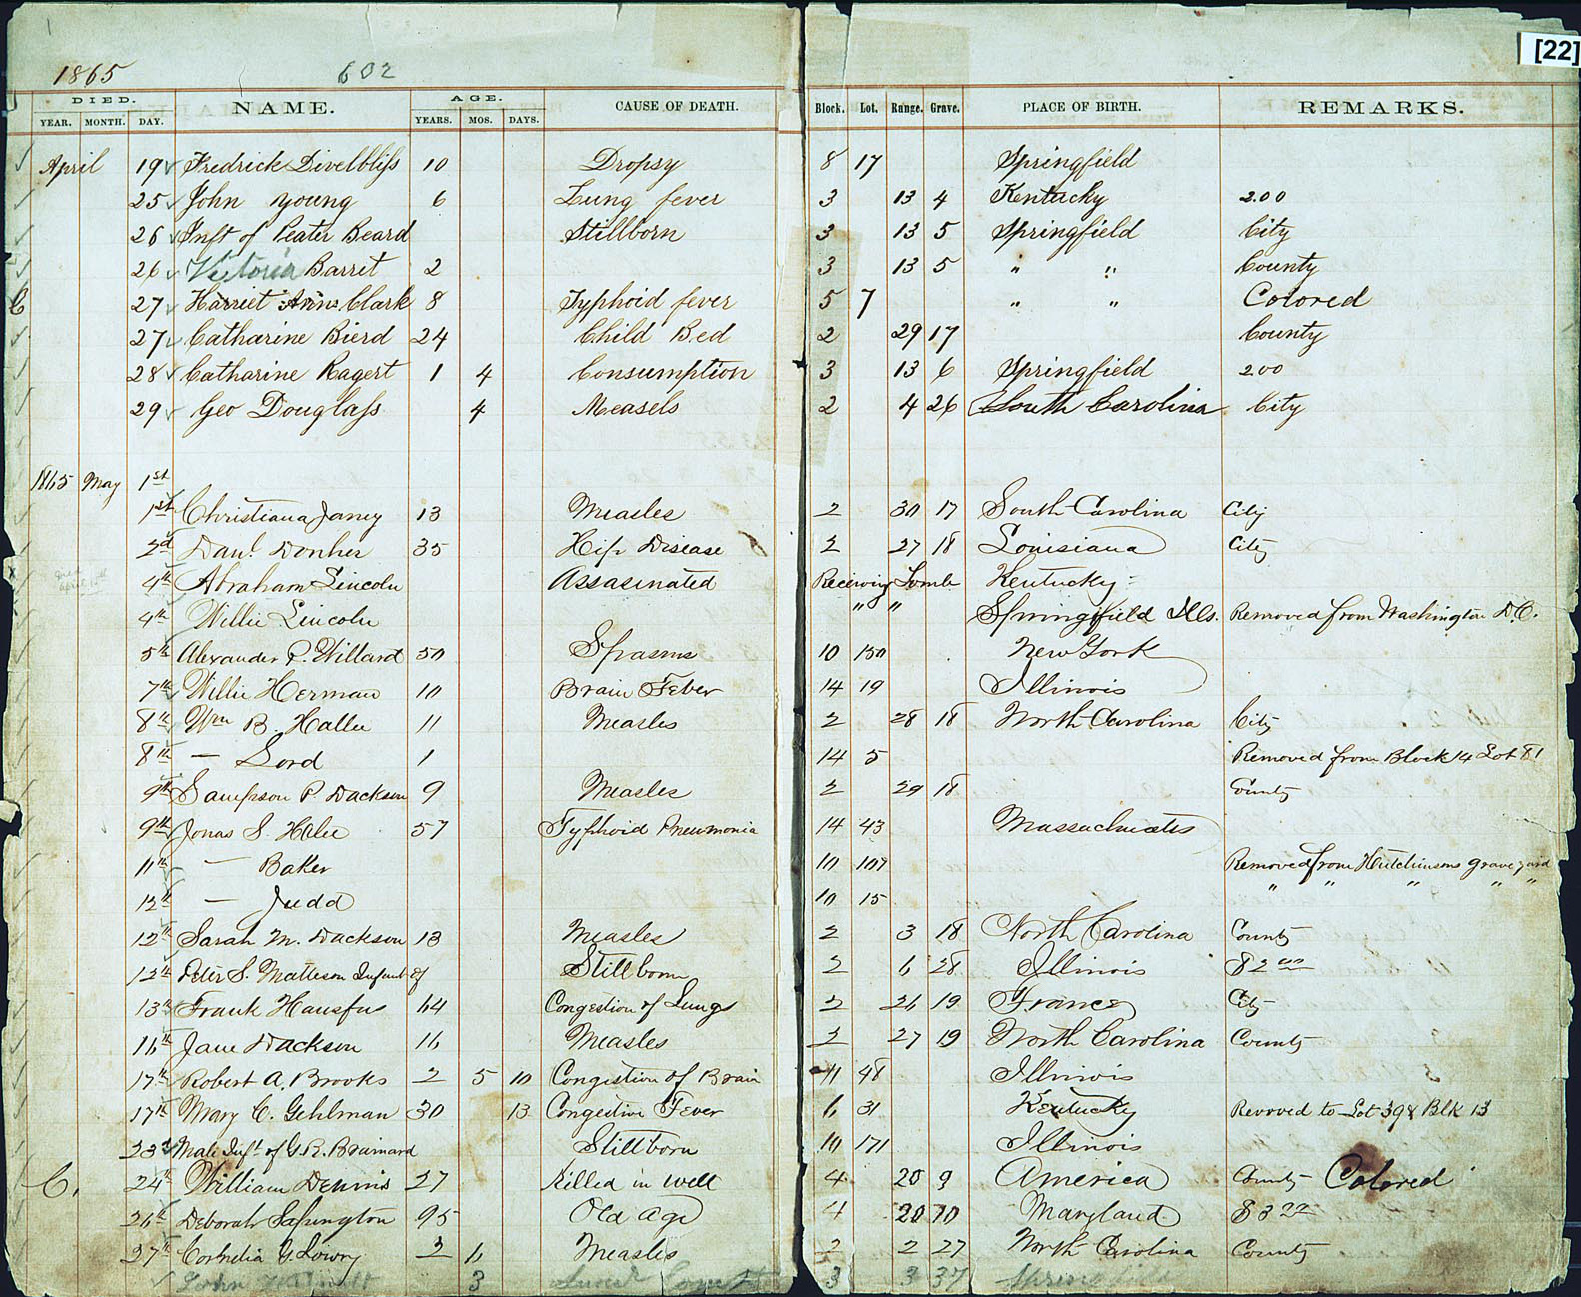 [22]
1865 602
DIED. NAME. AGE. CAUSE OF DEATH. Block. Lot. Range. Grave. PLACE OF BIRTH. REMARKS.
YEAR. MONTH. DAY. YEARS. MOS. DAYS.
April 19 Fredrick Divelbliss 10 Dropsy 8 17 Springfield
25 John Young 6 Lung fever 3 13 4 Kentucky 2.00
26 Inft of Peater Beard Stillborn 3 13 5 Springfield City
26 Victoria Barret 2 3 13 5 " " County
C 27 Harriet Ann Clark 8 Typhoid fever 5 7 " " Colored
27 Catharine Bierd 24 Child Bed 2 29 17 County
28 Catharine Ragert 1 4 Consumption 3 13 6 Springfield 2.00
29 Geo Douglass 4 Measels 2 4 26 South Carolina City
1865 May 1st
1st Christiana Janey 13 Measles 2 30 17 South Carolina City
2d Danl. Donher 35 Hip Disease 2 27 18 Louisiana City
4th Abraham Lincoln Assasinated Receiving Tomb Kentucky
4th Willie Lincoln " " Springfield Ills. Removed from Washington D.C.
5th Alexander P. Willard 50 Spasms 10 150 New York
7th Willie Herman 10 Brain Fever 14 19 Illinois
8th Wm B. Hallu 11 Measles 2 28 18 North Carolina City
8th — Lord 1 14 5 Removed from Block 14 Lot 81
9th Sampson P. Dackson 9 Measles 2 29 18 County
9th Jonas S. 57 Typhoid Pneumonia 14 43 Massachusetts
11th — Baker 10 107 Removed from Hutchinsons graveyard
12th — Judd 10 15 " " " " "
12th Sarah M. Dackson 13 Measles 2 3 18 North Carolina County
12th Peter S. Matteson Infant of Stillborn 2 6 28 Illinois $2.00
13th Frank Hausfus 64 Congestion of Lungs 2 26 19 France City
16th Jane Dackson 16 Measles 2 27 19 North Carolina County
17th Robert A. Brooks 2 5 10 Congestion of Brain 11 48 Illinois
17th Mary C. Gehlman 30 13 Congestive Fever 6 31 Kentucky Revoved to Lot 398 Blk 13
23d Male Inft. of G.R. Brainard Stillborn 10 171 Illinois
C. 24th William Dennis 27 Killed in well 4 20 9 America County Colored
26th Deborah Sapington 95 Old Age 4 20 10 Maryland $3.00
27th Cornelia G. Lowry 2 6 Measles 2 2 27 North Carolina County
John 3 3 3 37 Springfield